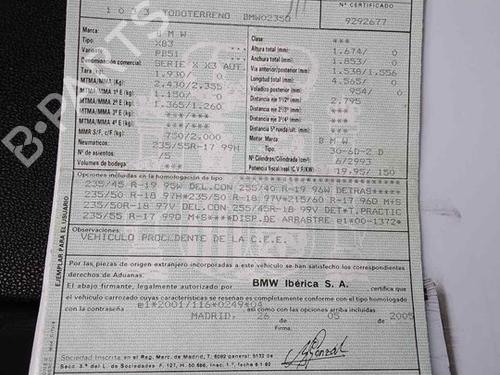 Nº CERTIFICADO
1 0 TODOTERRENO BMW02350 9292677
Marca: B M W
Tipo: X83
Variante: PB51
Denominación comercial: SERIE X X3 AUT.
Tara 1.930/ 0
MTMA/MMA (kg) 2,430/2,355
MTMA/MMA 1º E (kg) 1.150/ 0
MTMA/MMA 2º E (kg) 1.365/1.260
MTMA/MMA 3º E (kg) ***/
MTMA/MMA 4º E (kg) ***/
MMR S/F, c/F (kg) 750/2.000
Neumáticos: 235/55R-17 99H
Nº de asientos: /5
Volumen de bodega
Clase: ***
Altura total (mm): 1.674/ 0
Anchura total (mm): 1.853/ 0
Vía anterior/posterior (mm): 1.538/1.556
Longitud total (mm): 4.565/ 0
Voladizo posterior (mm): 954/ 0
Distancia eje 1º/2º (mm): 2.795
Distancia eje 2º/3º (mm): ***
Distancia eje 3º/4º (mm): ***
Distancia 5ª rueda/ (mm): ***
Motor: Marca B M W
Tipo: 30-6D-2 D
Nº Cilindros/Cilindrada (cm³) 6/2993
Potencia fiscal/real (C.V.F/KW) 19.95/ 150
Opciones incluidas en la homologación de tipo
235/45 R-19 95W DEL.CON 255/40 R-19 96W DETRAS*****
235/50 R-18 97H*235/50 R-18 97V*215/60 R-17 96Q M+S
235/50R-18 97V DEL.CON 255/45R-18 99V DET*T.PRACTIC
235/55 R-17 99Q M+S****DISP.DE ARRASTRE e1*00-1372*
Observaciones:
VEHICULO PROCEDENTE DE LA C.E.E.
Por las piezas de origen extranjero incorporadas a este vehículo se han satisfecho los correspondientes
derechos de Aduanas.
El abajo firmante, legalmente autorizado por BMW Ibérica S. A. certifica que
el vehículo carrozado cuyas características se reseñan es completamente conforme con el tipo homologado
con la contraseña e1*2001/116*0249*04 así como con las opciones arriba incluidas
MADRID, 26 05 2005
Firma.
Sociedad Inscrita en el Reg. Merc. de Madrid, T. 6092 general 5172 de
Secc. 3.ª del L. de Sociedades F. 127, H. 50.686, Insc. 1.ª fecha
EJEMPLAR PARA EL USUARIO
B-PARTS